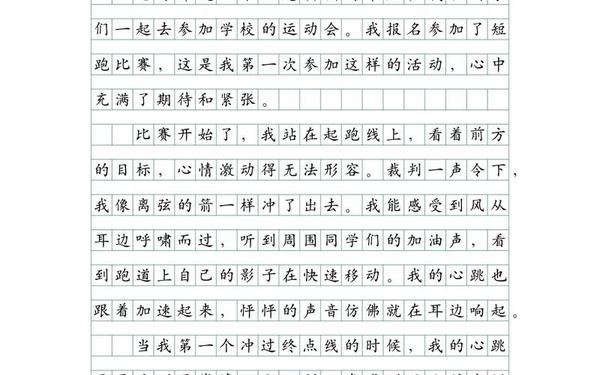 们一起去参加学校的运动会。我报名参加了短
跑比赛，这是我第一次参加这样的活动，心中
充满了期待和紧张。
比赛开始了，我站在起跑线上，看着前方
的目标，心情激动得无法形容。裁判一声令下，
我像离弦的箭一样冲了出去。我能感受到风从
耳边呼啸而过，听到周围同学们的加油声，看
到跑道上自己的影子在快速移动。我的心跳也
跟着加速起来，怦怦的声音仿佛就在耳边响起。
当我第一个冲过终点线的时候，我的心跳